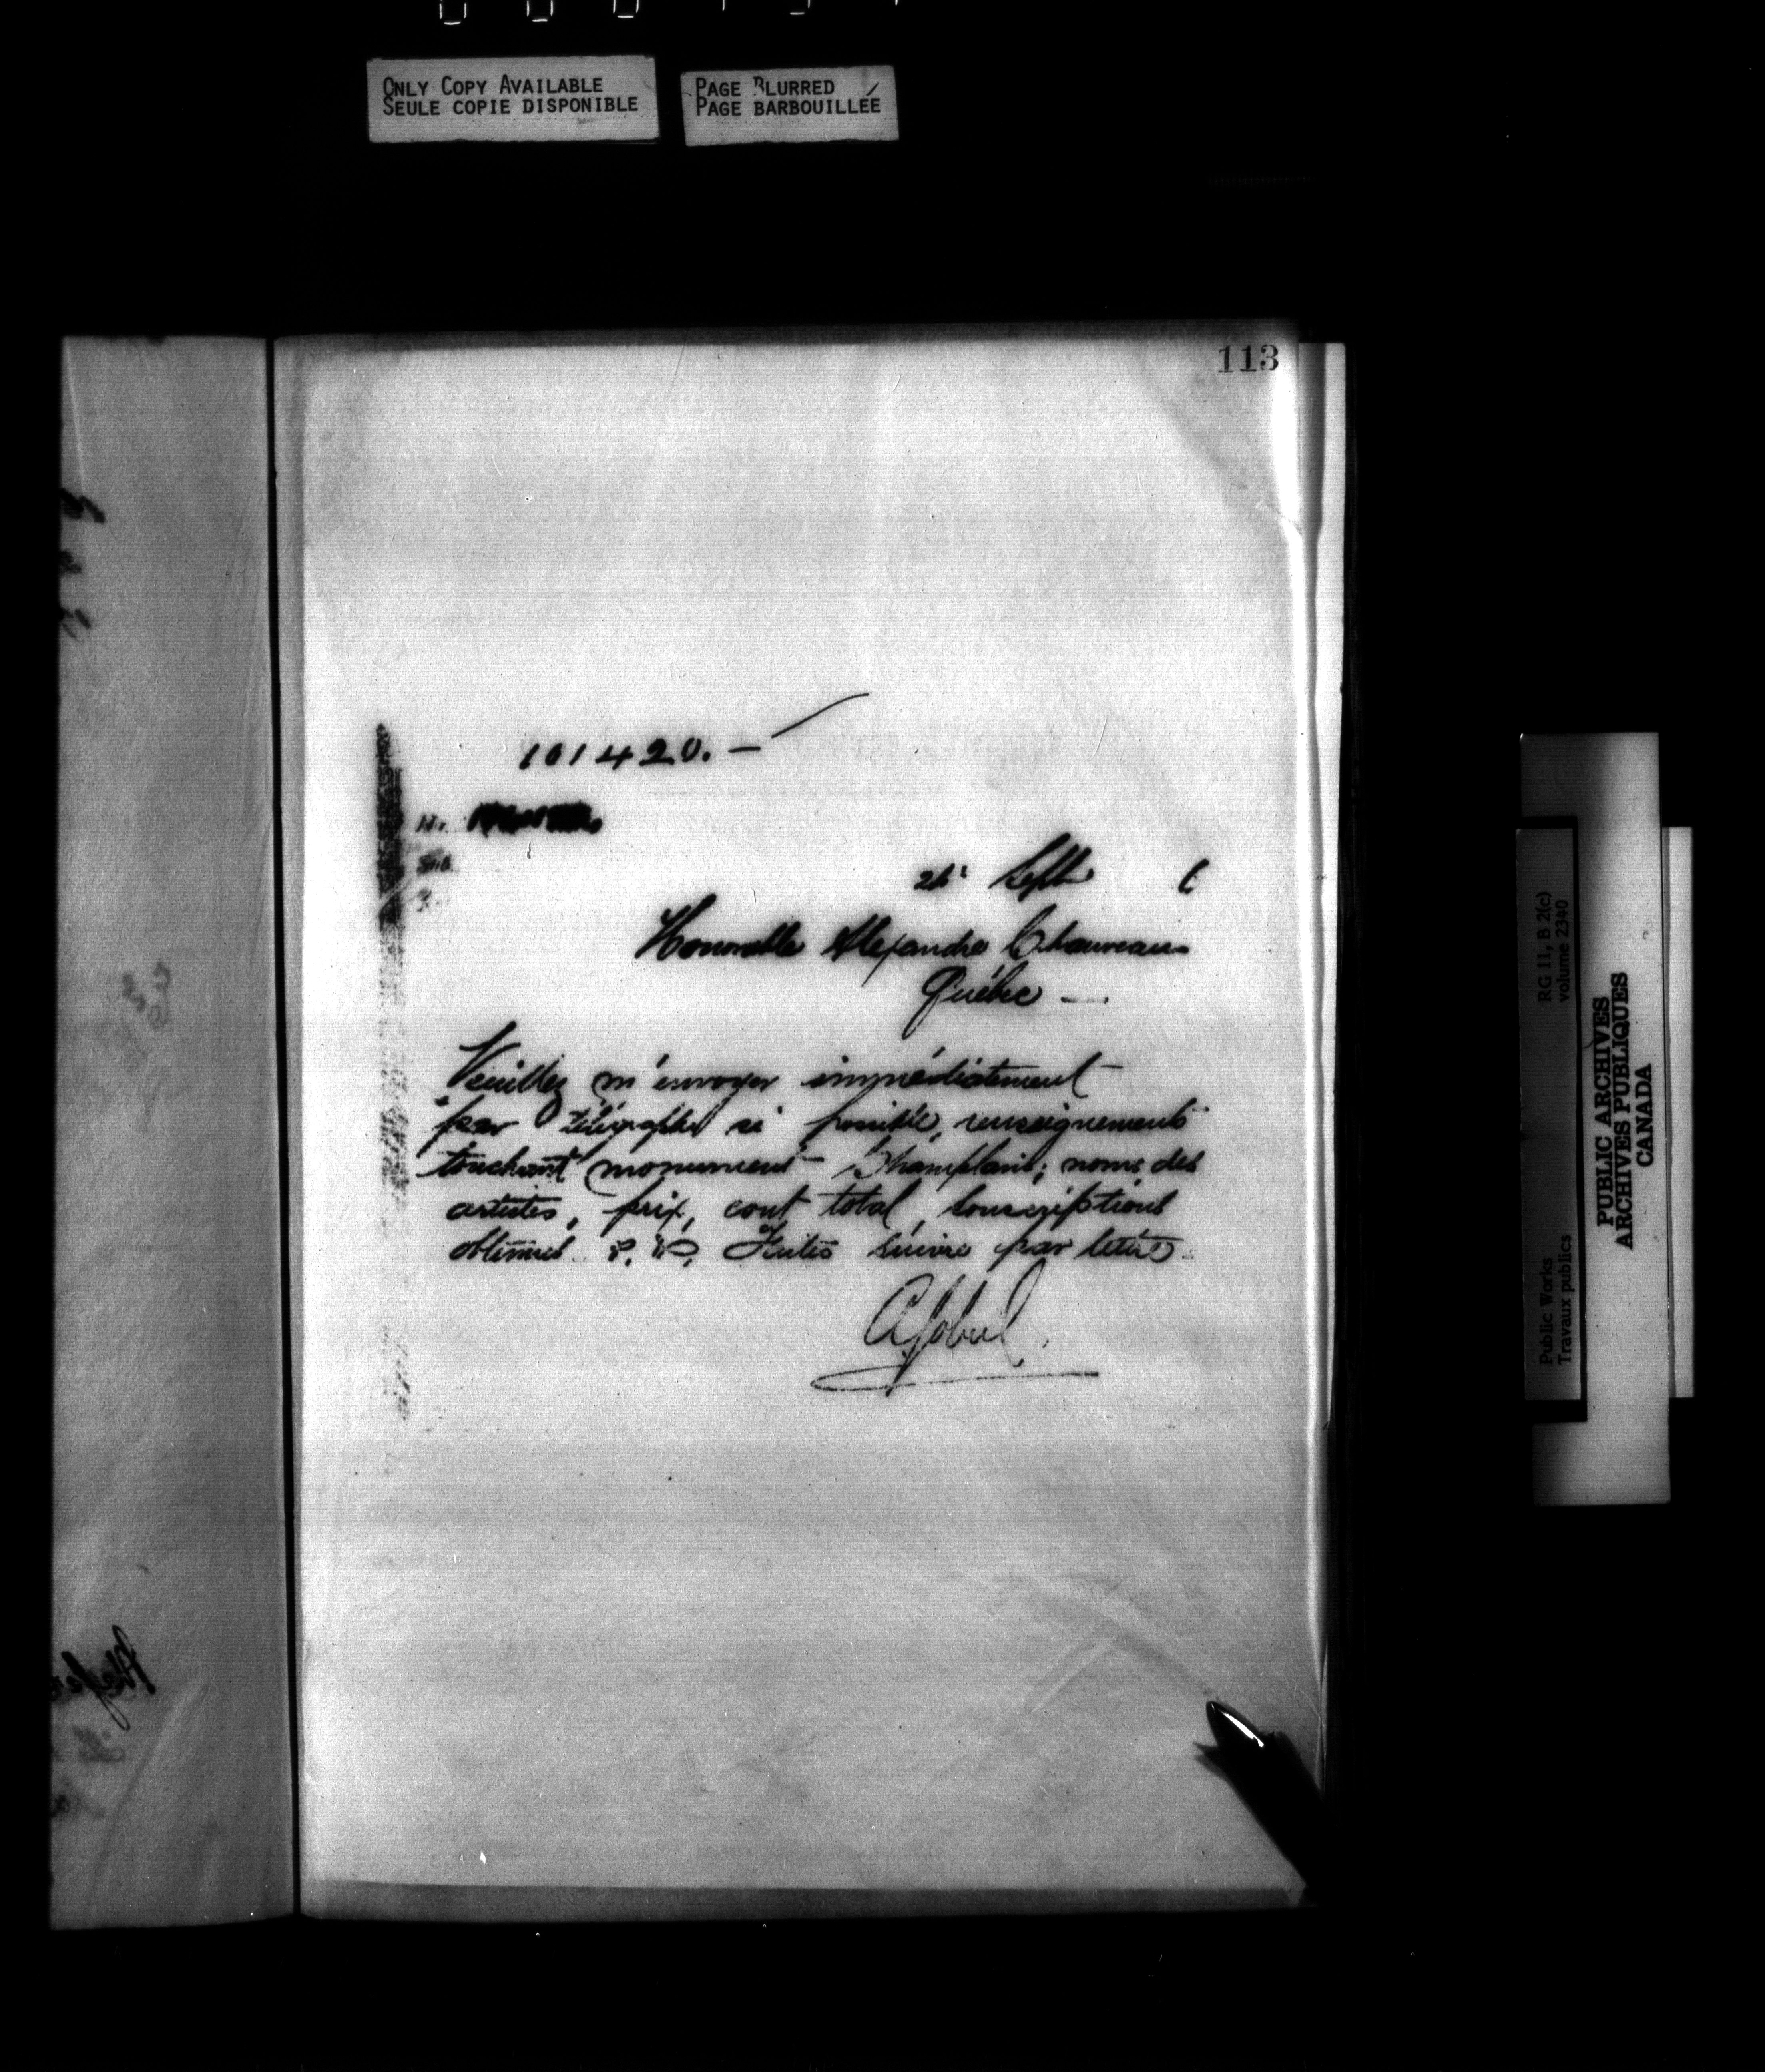 ONLY COPY AVAILABLE
SEULE COPIE DISPONIBLE
PAGE BLURRED
PAGE BARBOUILLÉE
113
101420. —
Sept 6
Honorable Alexandre Chauveau
Québec —
Veuillez m'envoyer immédiatement
par télégraphe si possible, renseignements
touchant monument Champlain; noms des
artistes, prix, cout total, souscriptions
obtenues Faites suivre par lettre
RG 11, B 2(c)
volume 2340
Public Works
Travaux publics
PUBLIC ARCHIVES
ARCHIVES PUBLIQUES
CANADA